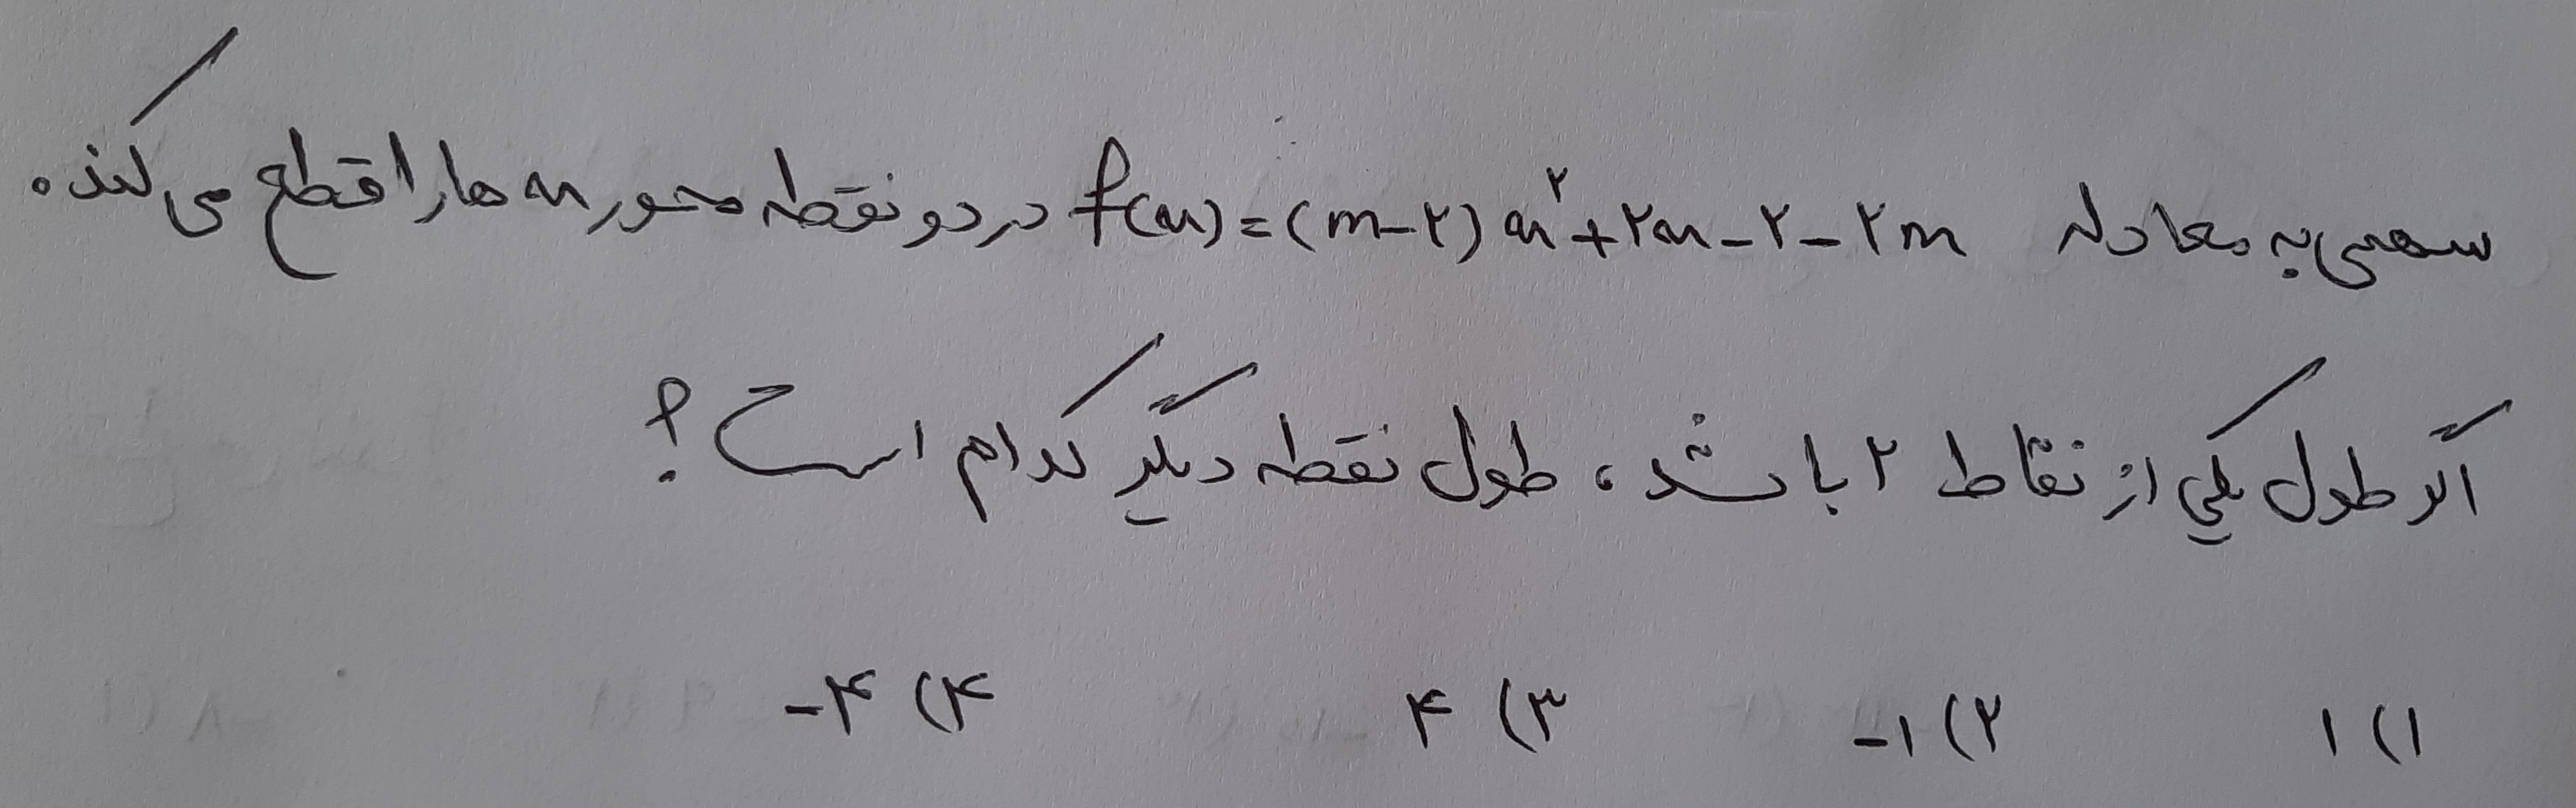 سهمی به معادله f(x) = (m-۲)x^۲+۲x-۲-۲m در دو نقطه محور xها را قطع می‌کند.
اگر طول یکی از نقاط ۲ باشد، طول نقطه دیگر کدام است؟
۱) ۱ ۲) -۱ ۳) ۴ ۴) -۴